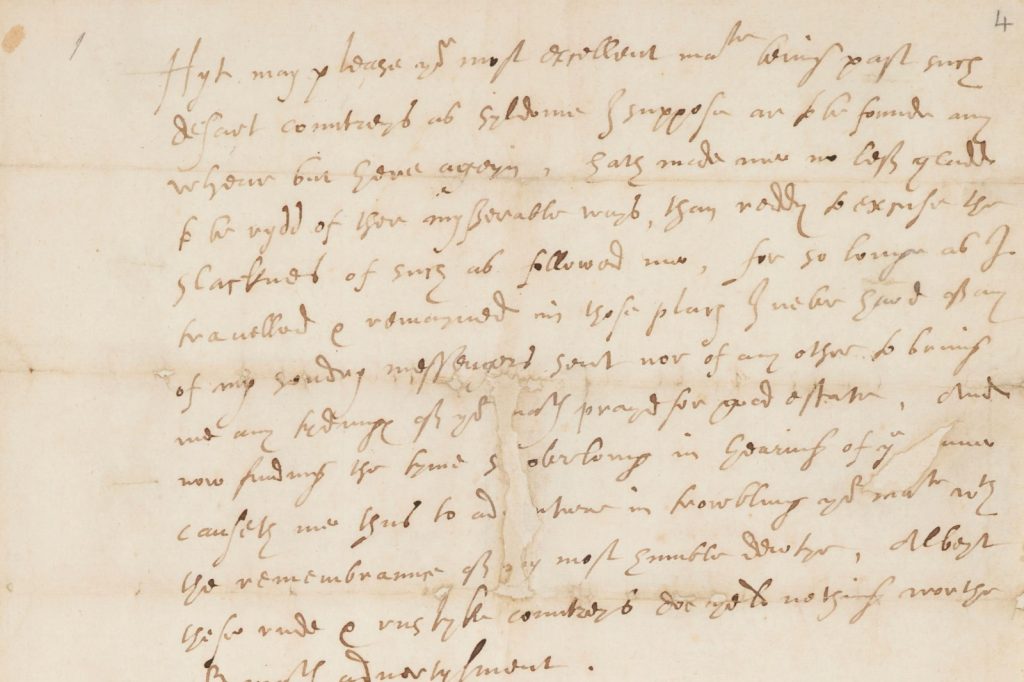 4
Hyt may please yor most excellent matie being past such
desart countreys as syldome I suppose ar to be founde any
whear but here ageyn, hath made me no less gladd
to be rydd of ther mysserable ways, than reddy to excuse the
slacknes of such as followed me, for so longe as I
travelled & remayned in those places I never hard of any
of my sondry messengers sent nor of any other to bring
me any tydinges of yor maties prayed for good estate, And
now finding the tyme overlong in hearing of ye same
causeth me thus to in trowbling yor matie wth
the remembrance of my most humble dewtye, Albeyt
these rude & rustyke countreys doe yeld nothing worthe
advertysment.